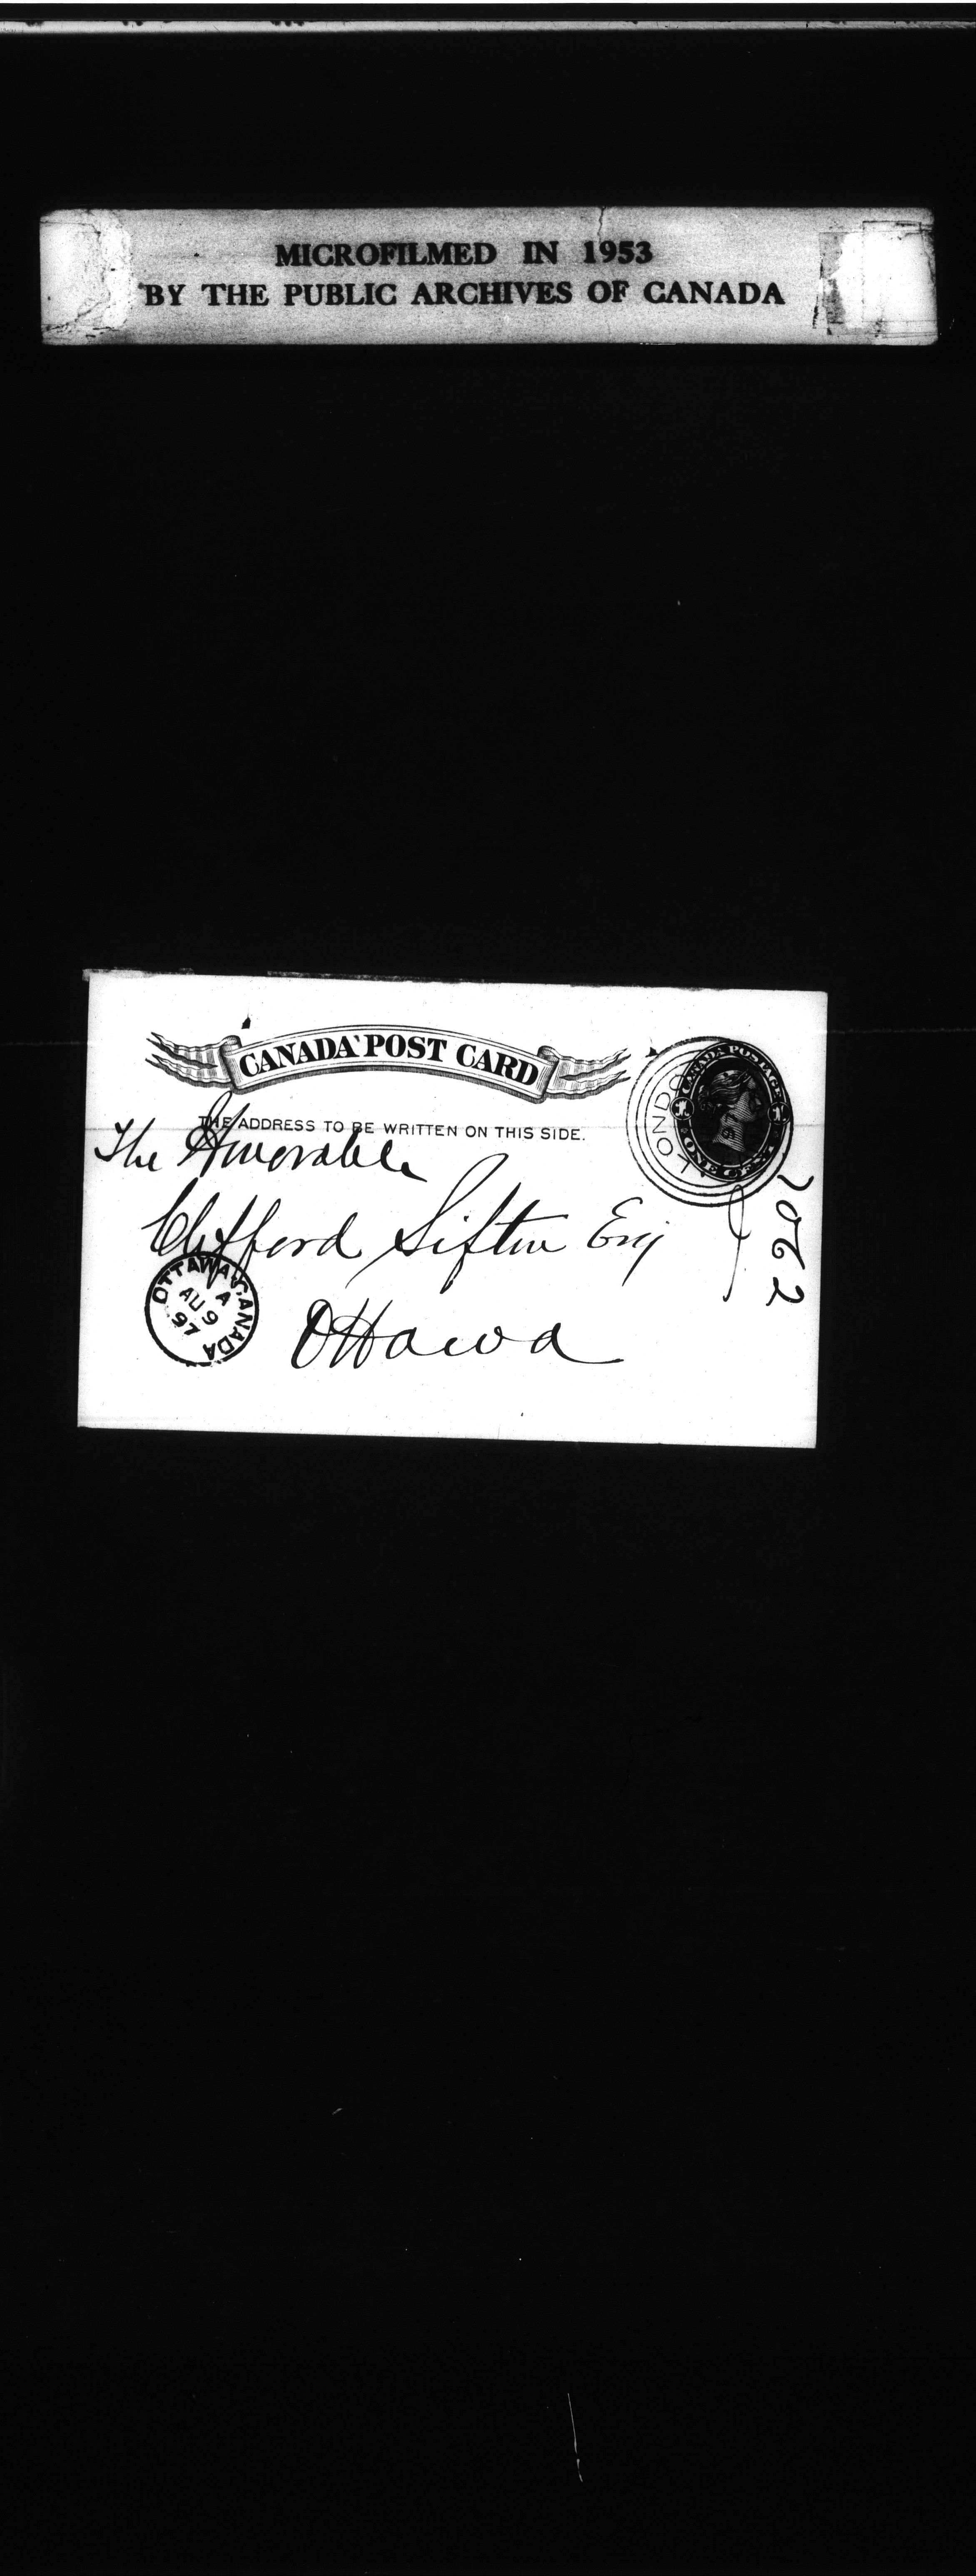 MICROFILMED IN 1953
BY THE PUBLIC ARCHIVES OF CANADA
CANADA POST CARD
CANADA POSTAGE
ONE CENT
THE ADDRESS TO BE WRITTEN ON THIS SIDE.
The Honorable
Clifford Sifton Esq
Ottawa
OTTAWA CANADA
A
AU 9
97